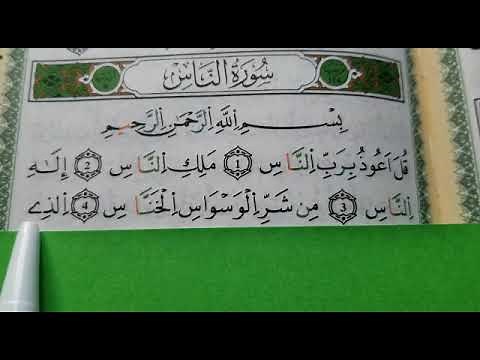 سُورَةُ النَّاسِ
بِسْمِ اللّٰهِ الرَّحْمٰنِ الرَّحِيمِ
قُلْ اَعُوذُ بِرَبِّ النَّاسِ ﴿1﴾ مَلِكِ النَّاسِ ﴿2﴾ اِلٰهِ
النَّاسِ ﴿3﴾ مِنْ شَرِّ الْوَسْوَاسِ الْخَنَّاسِ ﴿4﴾ الَّذِي